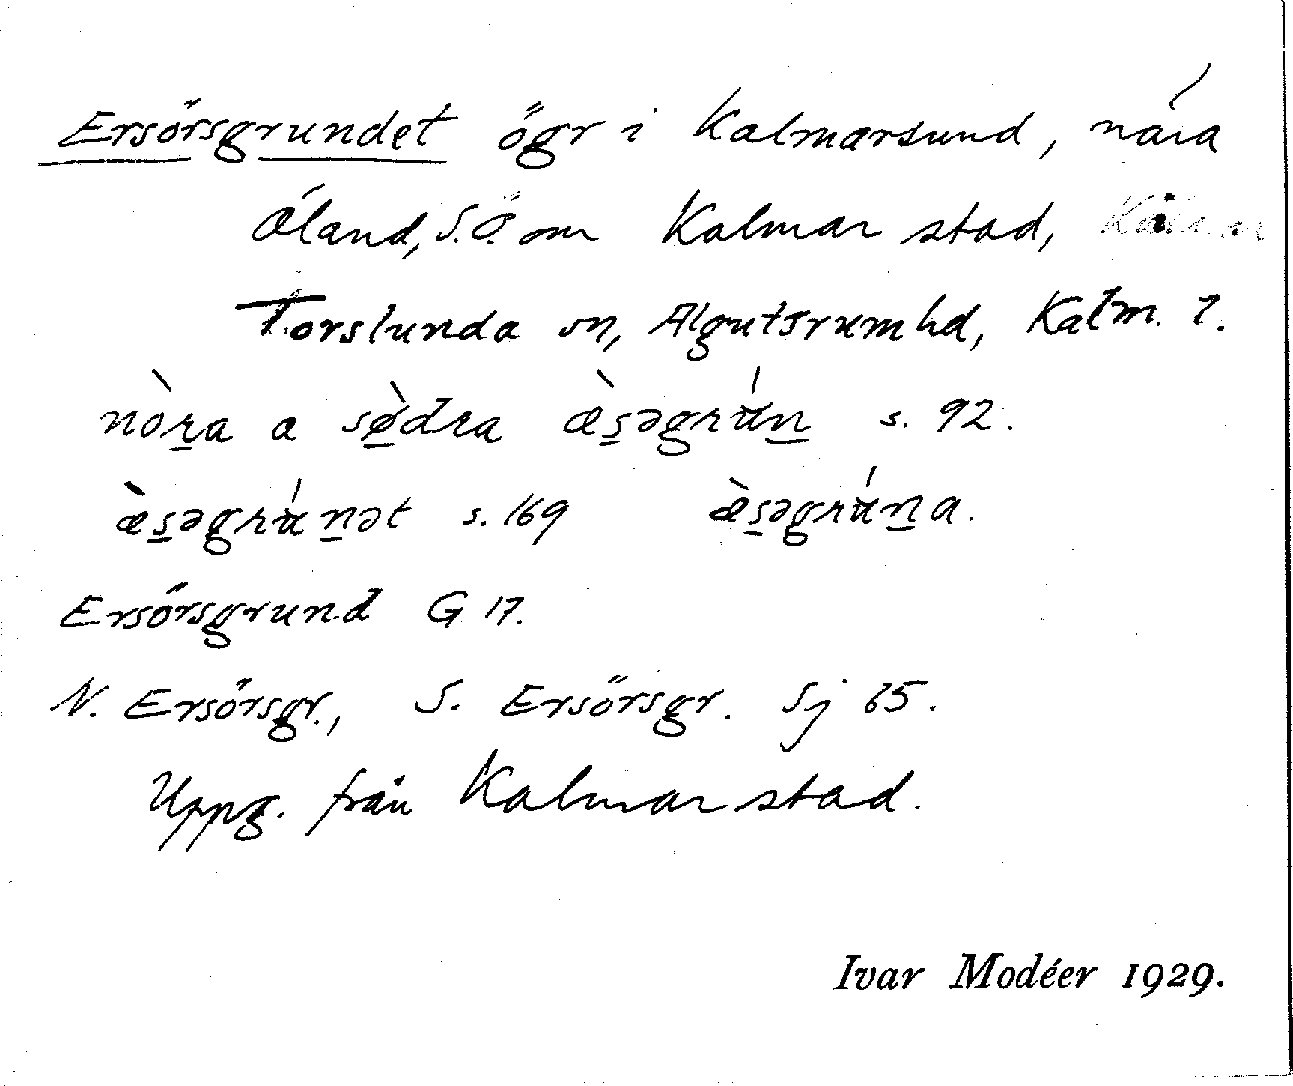 Ersörsgrundet ögr i Kalmarsund, nära
Öland, S.Ö. om Kalmar stad,
Torslunda sn, Algutsrumhd, Kalm. l.
nòra a sø̀dra æ̀səgrún s. 92.
æ̀səgrúnət s. 169 æ̀səgrúna.
Ersörsgrund G 17.
N. Ersörsgr., S. Ersörsgr. Sj 65.
Uppg. från Kalmar stad.
Ivar Modéer 1929.